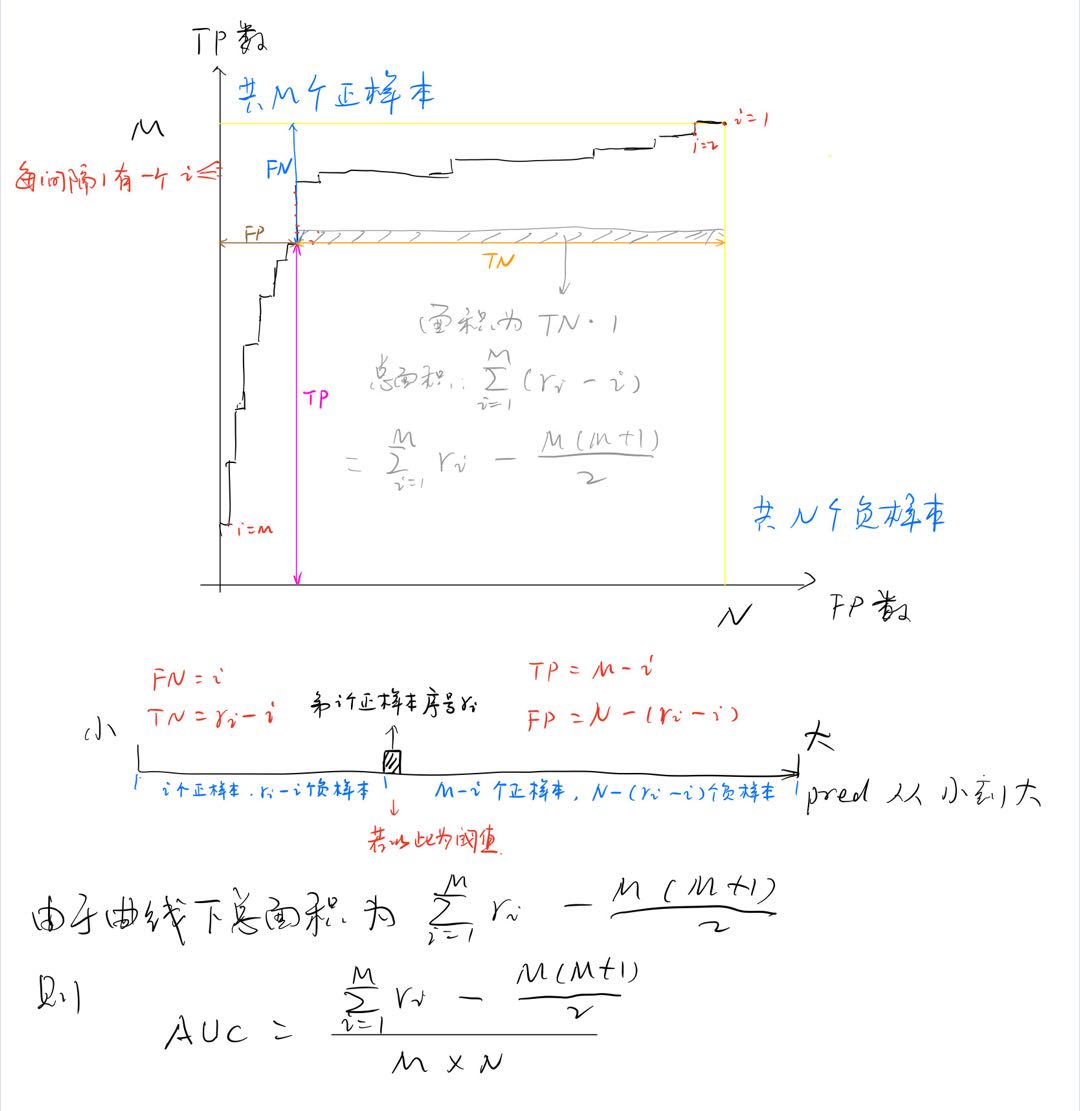 TP数
共M个正样本
M
i=1
i=2
FN
每间隔1有一个i
FP
i
TN
面积为 TN·1
总面积: \sum_{i=1}^{M} (r_i - i)
TP
= \sum_{i=1}^{M} r_i - \frac{M(M+1)}{2}
i=M
共N个负样本
N
FP数
FN = i
TP = M-i
TN = r_i-i
第i个正样本序号r_i
FP = N-(r_i-i)
小
大
i个正样本, r_i-i个负样本
M-i个正样本, N-(r_i-i)个负样本
pred 从小到大
若以此为阈值
由于曲线下总面积为 \sum_{i=1}^{M} r_i - \frac{M(M+1)}{2}
则
AUC = \frac{\sum_{i=1}^{M} r_i - \frac{M(M+1)}{2}}{M×N}